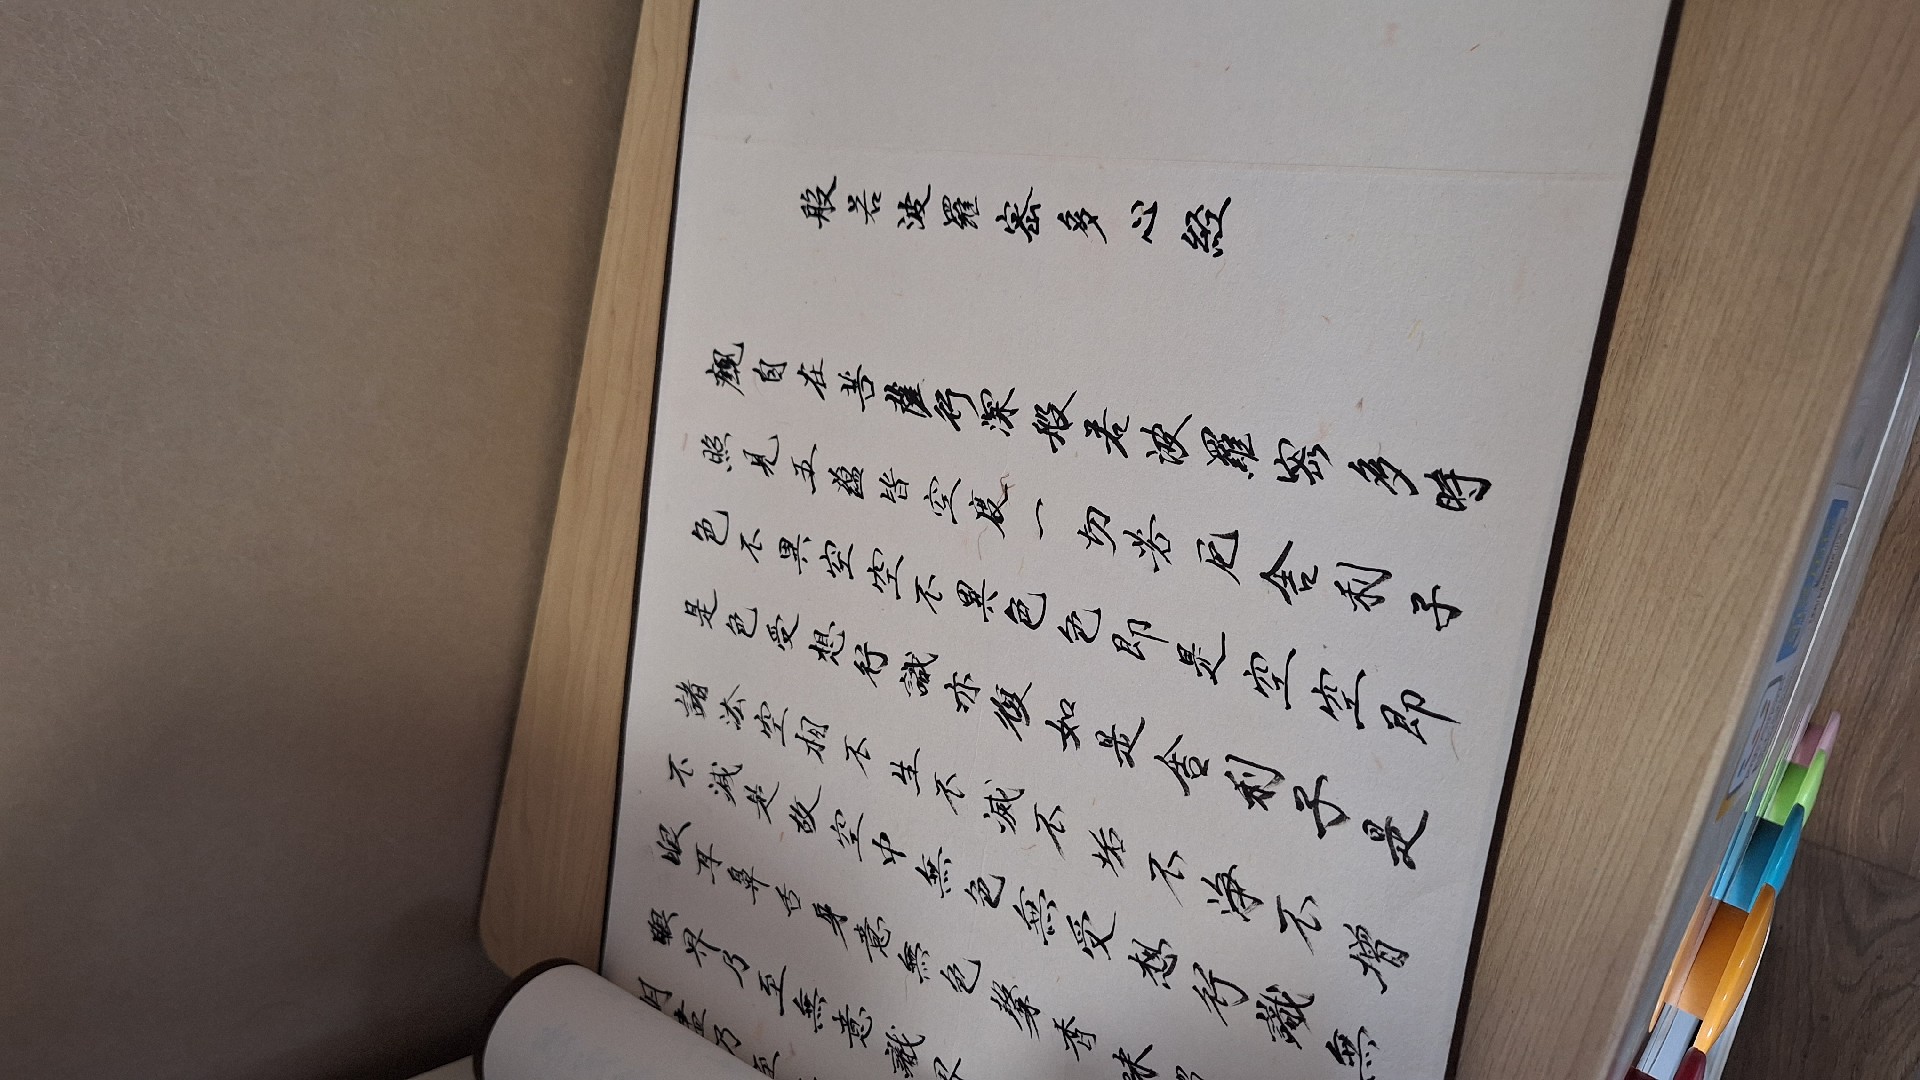 般若波羅蜜多心経
觀自在菩薩行深般若波羅蜜多時
照見五蘊皆空度一切苦厄舍利子
色不異空空不異色色即是空空即
是色受想行識亦復如是舍利子是
諸法空相不生不滅不垢不淨不增
不減是故空中無色無受想行識無
眼耳鼻舌身意無色聲香味
眼界乃至無意識界
明盡乃至